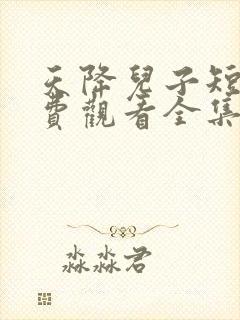 天降兒子短
費觀看全集
淼淼君